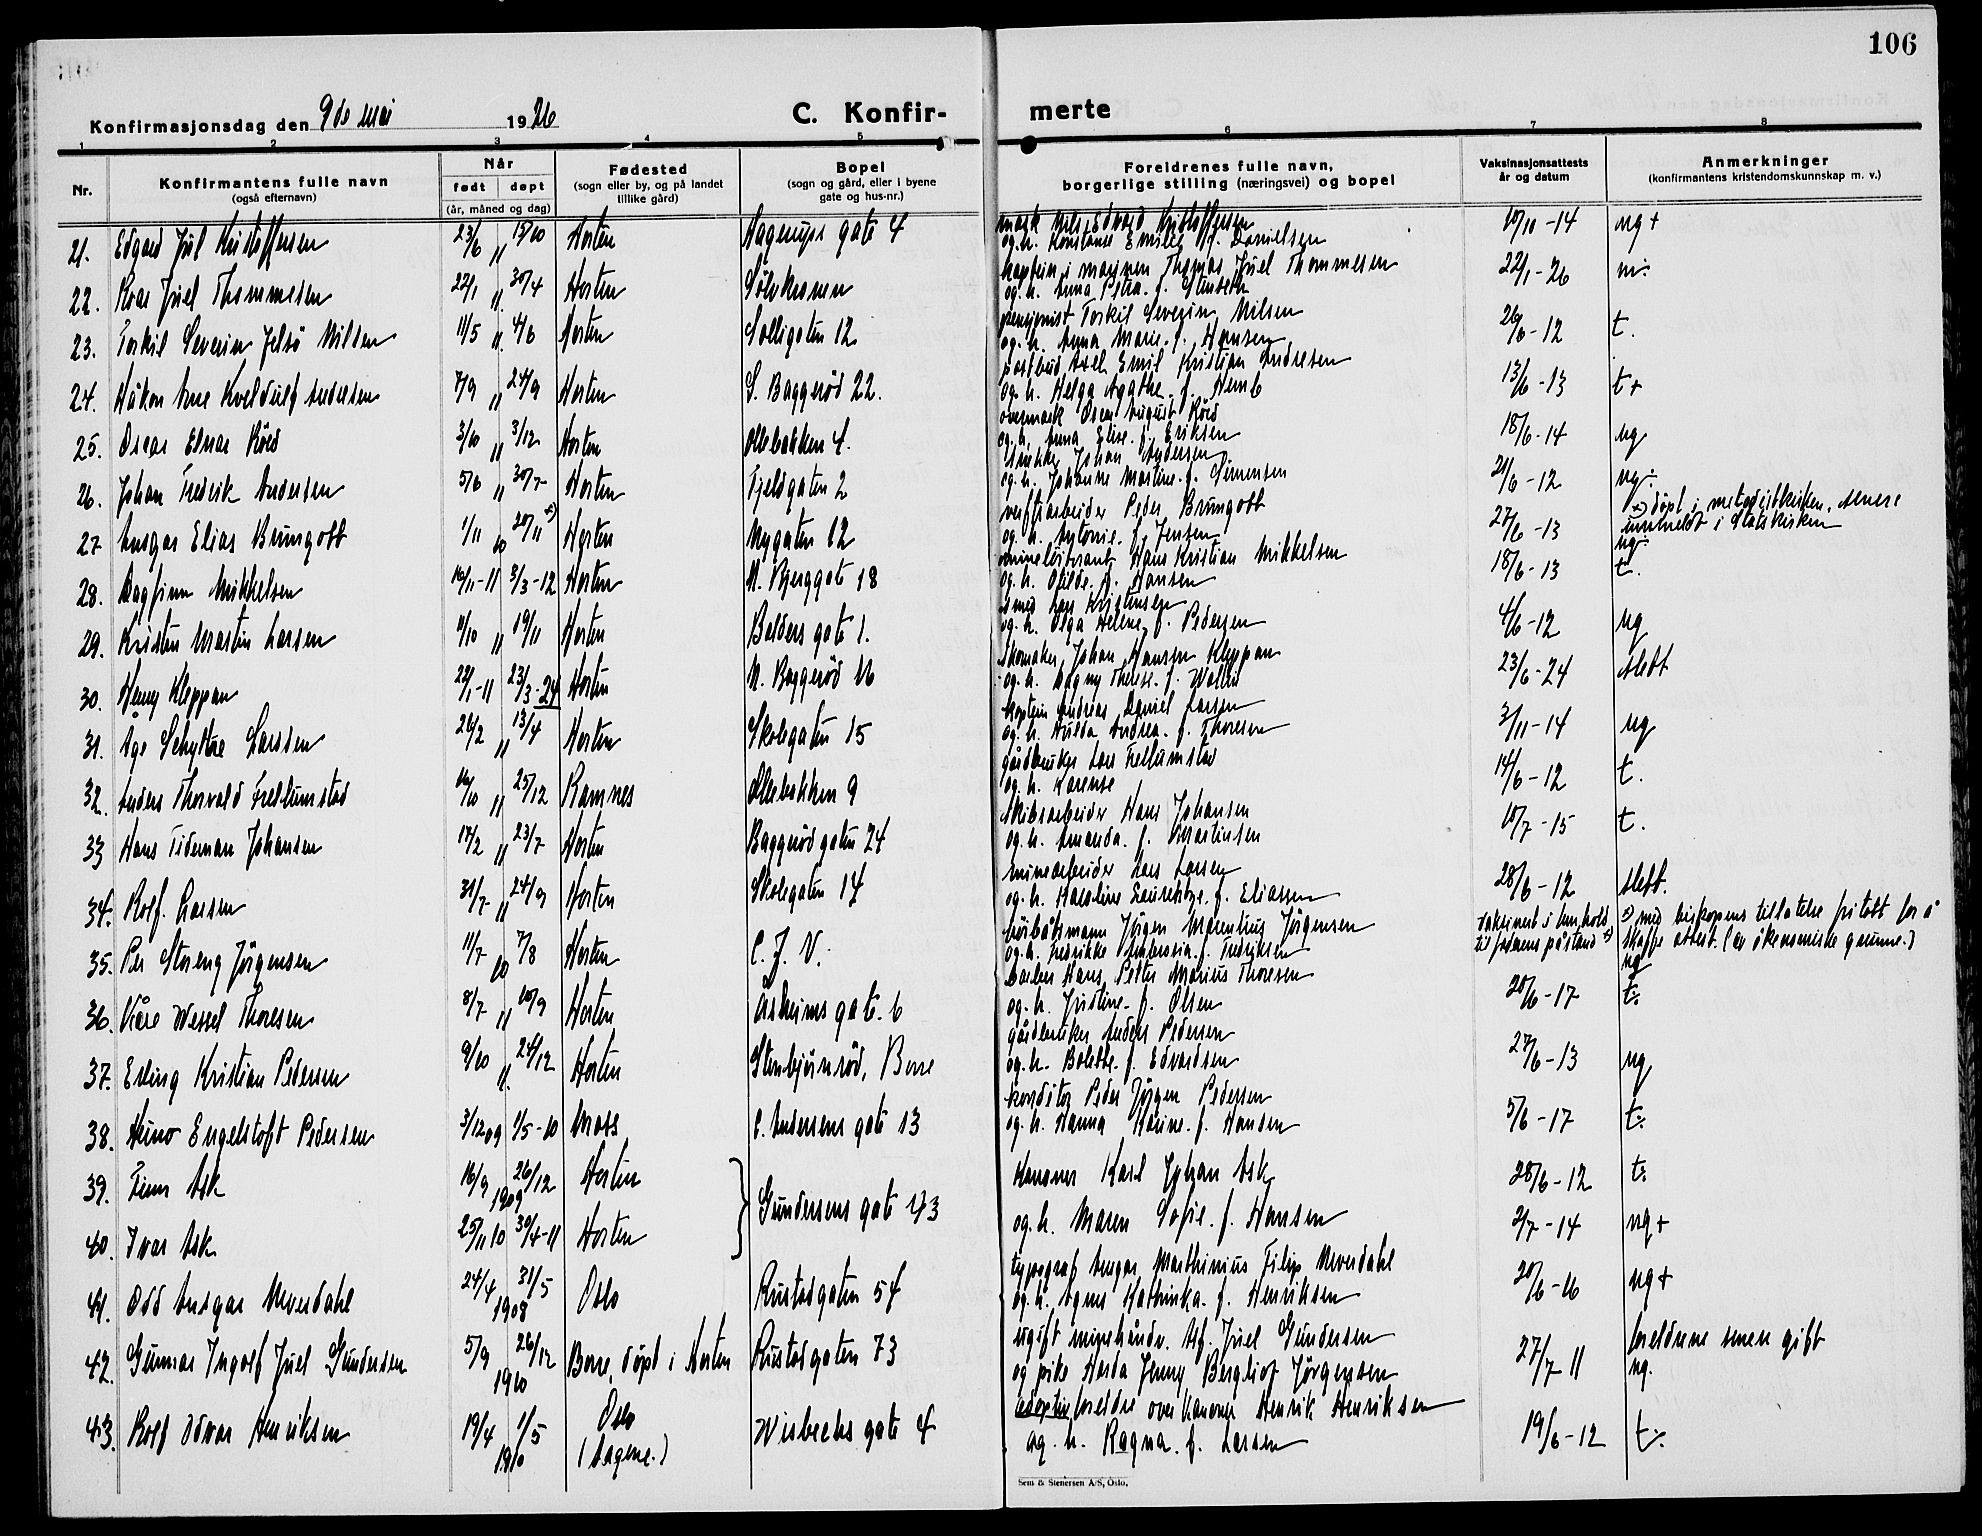 106
Konfirmasjonsdag den 9de mai 1926 C. Konfir- merte
1 2 3 4 5 6 7 8
Nr. Konfirmantens fulle navn (også efternavn) Når født døpt (år, måned og dag) Fødested (sogn eller by, og på landet tillike gård) Bopel (sogn og gård, eller i byene gate og hus-nr.) Foreldrenes fulle navn, borgerlige stilling (næringsvei) og bopel Vaksinasjonsattests år og datum Anmerkninger (konfirmantens kristendomskunnskap m. v.)
21. Edgard Jul Kristoffersen 23/6 11 15/10 Horten Hagerups gate 4 mask Nils Edvard Kristoffersen 10/11-14 ng +
og. h. Konstanse Emilie f. Danielsen
22. Roar Juel Thommesen 22/1 11. 30/4 Horten Sölvkronen kaptein i marinen Thomas Juel Thommesen 22/1-26 m÷
og. h. Anna Petra. f. Stenseth
23. Torkil Severin Jelsö Nilsen 11/5 11. 4/6 Horten Solligaten 12 pensjonist Torkil Severin Nilsen 26/6-12 t.
og. h. Anna Marie. f. Hansen
24. Håkon Arne Kveldulf Andresen 7/9 11 24/9 Horten S. Baggerød 22. postbud Axel Emil Kristian Andresen 13/6-13 t+
og. h. Helga Agathe. f. Hemb
25. Oscar Elnar Röed 3/10 11 3/12 Horten Ollebakken 4. overmask Oscar August Röed 18/6-14 ng
og. h. Anna Elise. f. Eriksen
26. Johan Fredrik Andersen 5/6 11 30/7 Horten Fjeldgaten 2 Snekker Johan Andersen 21/6-12 ng÷
og. h. Johanne Martine. f. Simensen
27 Ansgar Elias Brungott 1/11 10 20/11 x) Horten Nygaten 12 verftsarbeider Peder Brungott 27/6-13 x) döpt i metodistkirken, senere innmeldt i Statskirken
og. h. Antonie. f. Jensen ng÷
28. Dagfinn Mikkelsen 16/11-11 3/3-12 Horten N. Bjerggate 18 mineløitnant Hans Kristian Mikkelsen 18/6-13 t.
og. h. Otilde. f. Hansen
29. Kristen Martin Larsen 11/10 11 19/11 Horten Balders gate 1. smed Lars Kristensen 4/6-12 ng
og. h. Olga Helene, f. Pedersen
30. Henry Kleppan 22/1-11 23/3-24 Horten N. Baggerød 16 Skomaker Johan Hansen Kleppan 23/6-24 slett
og. h. Dagny Therese. f. Wollen
31. Åge Schytte Larsen 26/2 11 13/4 Horten Skolegaten 15 kaptein Andreas Daniel Larsen 3/11-14 ng
og. h. Hulda Andrea. f. Thoresen
32. Anders Thorvald Frellumstad 16/10 11 25/12 Ramnes Ollebakken 9 gårdbruker Lars Frellumstad 14/6-12 t.
og. h. Karense
33 Hans Tideman Johansen 17/2 11 23/7 Horten Baggerödgaten 24 Skibsarbeider Hans Johansen 10/7-15 t.
og. h. Amanda. f. Martinsen
34. Rolf. Larsen 31/7 11 24/9 Horten Skolegaten 14 minearbeider Lars Larsen 28/6-12 slett.
og. h. Karoline f. Eliassen
35. Per Storeng Jörgensen 11/7 10 7/8 Horten C. J. V. höibåtsmann Jörgen Marentius Jörgensen vaksinert i henhold til faderens påstand x) x) med biskopens tillatelse fritatt for å skaffe attest. (av ökonomiske grunne.)
og. h. Fredrikke Ambrosia. f. Fredriksen ng
36. Kåre Wessel Thoresen 8/7 11 10/9 Horten Askeims gate. 6 barber Hans Petter Marius Thoresen 20/6-17 t÷
og. h. Justine. f. Olsen
37. Erling Kristian Pedersen 9/10 11. 24/12 Horten Stenbjörnröd, Borre gårdbruker Anders Pedersen 27/6-13 ng
og. h. Bolette. f. Edvardsen
38. Heino Engelstoft Pedersen 3/12 09 1/5-10 Moss C. Andersens gate 13 konditor Peder Jörgen Pedersen 5/6-17 t÷
og. h. Hanna Karine. f. Hansen
39. Finn Ask 16/9 1909 26/12 Horten Gundersens gate 43 Kanoner Karl Johan Ask 28/6-12 t÷
40. Ivar Ask 25/11 10 30/4-11 Horten og. h. Maren Sofie. f. Hansen 2/7-14 ng+
41. Odd Ansgar Meverdahl 24/4 1908 31/5 Oslo Rustadgaten 54 typograf Ansgar Marthinius Filip Meverdahl 20/6-16 ng+
og. h. Agnes Kathinka. f. Henriksen
42. Gunnar Ingolf Juel Gundersen 5/9 1910 26/12 Borre, döpt i Horten Rustadgaten 73 ugift minehåndv. Alf. Juel Gundersen 27/7-11 foreldrene senere gift
og pike Herda Jenny Bergliot Jörgensen ng.
43. Rolf Odvar Henriksen 19/4 1910 1/5 Oslo (Aagene.) Wisbechs gate 4 adoptivforeldre over kanoner Henrik Henriksen 19/6-12 t÷
og. h. Ragna. f. Larsen
Sem & Stenersen A/S, Oslo.